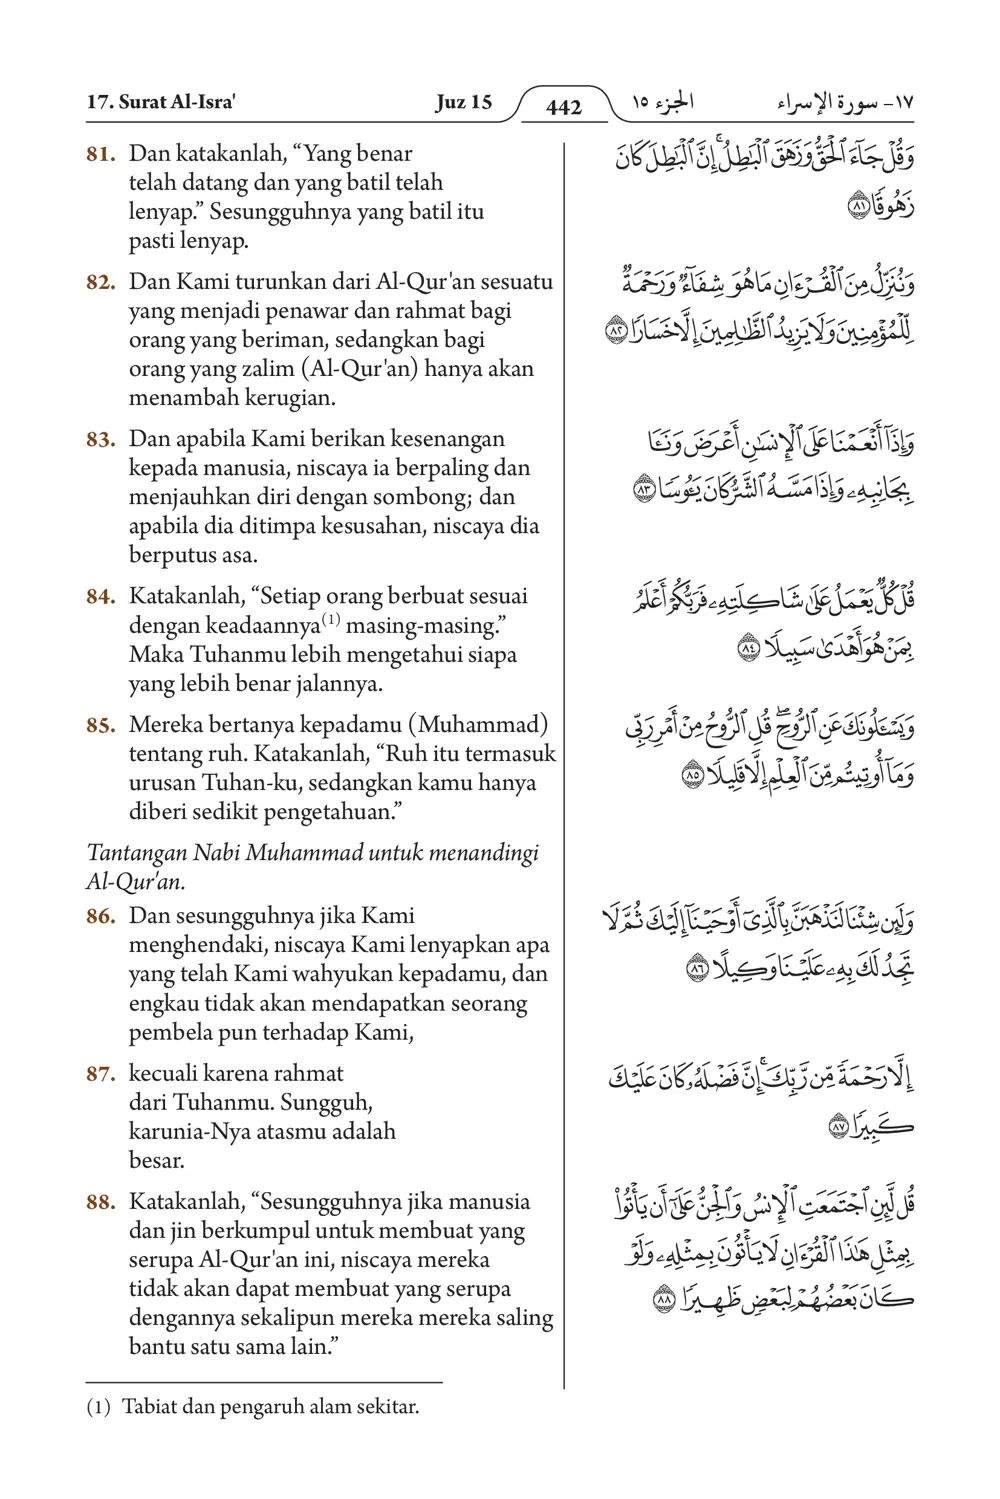 17. Surat Al-Isra'
Juz 15
442
الجزء ١٥
١٧- سورة الإسراء
81. Dan katakanlah, “Yang benar
telah datang dan yang batil telah
lenyap.” Sesungguhnya yang batil itu
pasti lenyap.
وَقُلْ جَآءَ ٱلْحَقُّ وَزَهَقَ ٱلْبَٰطِلُ ۚ إِنَّ ٱلْبَٰطِلَ كَانَ
زَهُوقًا ٨١
82. Dan Kami turunkan dari Al-Qur'an sesuatu
yang menjadi penawar dan rahmat bagi
orang yang beriman, sedangkan bagi
orang yang zalim (Al-Qur'an) hanya akan
menambah kerugian.
وَنُنَزِّلُ مِنَ ٱلْقُرْءَانِ مَا هُوَ شِفَآءٌ وَرَحْمَةٌ
لِّلْمُؤْمِنِينَ وَلَا يَزِيدُ ٱلظَّٰلِمِينَ إِلَّا خَسَارًا ٨٢
83. Dan apabila Kami berikan kesenangan
kepada manusia, niscaya ia berpaling dan
menjauhkan diri dengan sombong; dan
apabila dia ditimpa kesusahan, niscaya dia
berputus asa.
وَإِذَآ أَنْعَمْنَا عَلَى ٱلْإِنسَٰنِ أَعْرَضَ وَنَـَٔا
بِجَانِبِهِۦ وَإِذَا مَسَّهُ ٱلشَّرُّ كَانَ يَـُٔوسًا ٨٣
84. Katakanlah, “Setiap orang berbuat sesuai
dengan keadaannya(1) masing-masing.”
Maka Tuhanmu lebih mengetahui siapa
yang lebih benar jalannya.
قُلْ كُلٌّ يَعْمَلُ عَلَىٰ شَاكِلَتِهِۦ فَرَبُّكُمْ أَعْلَمُ
بِمَنْ هُوَ أَهْدَىٰ سَبِيلًا ٨٤
85. Mereka bertanya kepadamu (Muhammad)
tentang ruh. Katakanlah, “Ruh itu termasuk
urusan Tuhan-ku, sedangkan kamu hanya
diberi sedikit pengetahuan.”
وَيَسْـَٔلُونَكَ عَنِ ٱلرُّوحِ ۖ قُلِ ٱلرُّوحُ مِنْ أَمْرِ رَبِّى
وَمَآ أُوتِيتُم مِّنَ ٱلْعِلْمِ إِلَّا قَلِيلًا ٨٥
Tantangan Nabi Muhammad untuk menandingi
Al-Qur'an.
86. Dan sesungguhnya jika Kami
menghendaki, niscaya Kami lenyapkan apa
yang telah Kami wahyukan kepadamu, dan
engkau tidak akan mendapatkan seorang
pembela pun terhadap Kami,
وَلَئِن شِئْنَا لَنَذْهَبَنَّ بِٱلَّذِىٓ أَوْحَيْنَآ إِلَيْكَ ثُمَّ لَا
تَجِدُ لَكَ بِهِۦ عَلَيْنَا وَكِيلًا ٨٦
87. kecuali karena rahmat
dari Tuhanmu. Sungguh,
karunia-Nya atasmu adalah
besar.
إِلَّا رَحْمَةً مِّن رَّبِّكَ ۚ إِنَّ فَضْلَهُۥ كَانَ عَلَيْكَ
كَبِيرًا ٨٧
88. Katakanlah, “Sesungguhnya jika manusia
dan jin berkumpul untuk membuat yang
serupa Al-Qur'an ini, niscaya mereka
tidak akan dapat membuat yang serupa
dengannya sekalipun mereka mereka saling
bantu satu sama lain.”
قُل لَّئِنِ ٱجْتَمَعَتِ ٱلْإِنسُ وَٱلْجِنُّ عَلَىٰٓ أَن يَأْتُوا۟
بِمِثْلِ هَٰذَا ٱلْقُرْءَانِ لَا يَأْتُونَ بِمِثْلِهِۦ وَلَوْ
كَانَ بَعْضُهُمْ لِبَعْضٍ ظَهِيرًا ٨٨
(1) Tabiat dan pengaruh alam sekitar.